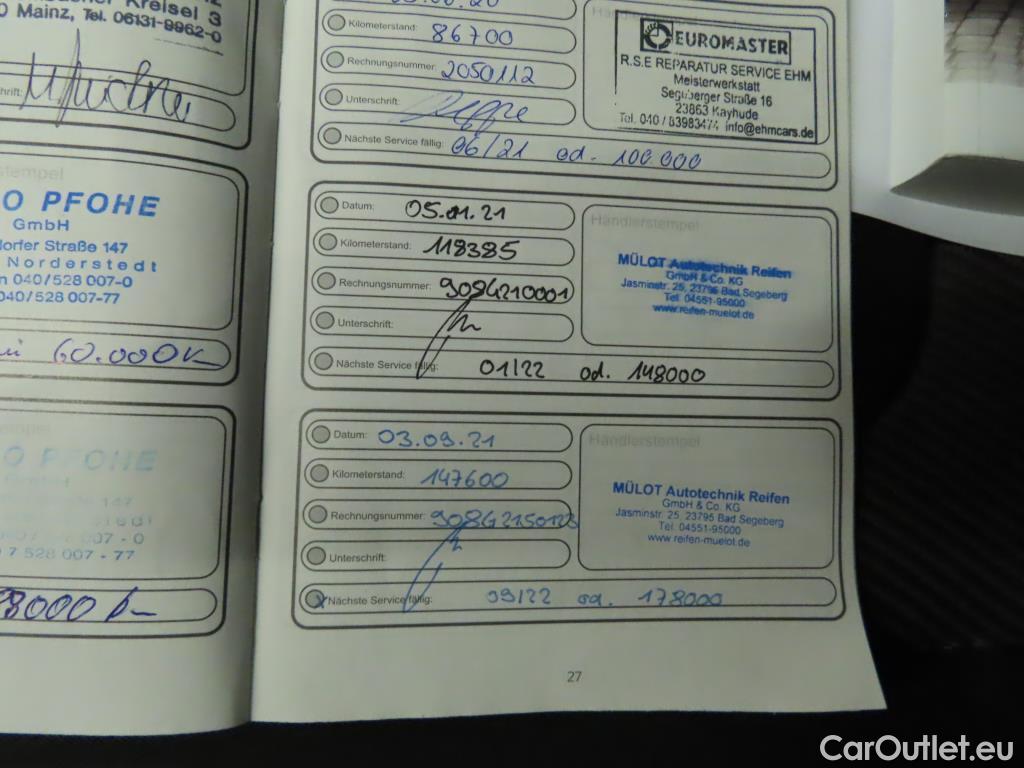 Kreisel 3
Mainz, Tel. 06131-9962-0
O PFOHE
GmbH
dorfer Straße 147
Norderstedt
040/528 007-0
040/528 007-77
60.000
O PFOHE
147
007 - 0
7 528 007 - 77
8000
Kilometerstand: 86700
Rechnungsnummer: 2050112
Unterschrift:
Nächste Service fällig: 06/21 od. 100.000
EUROMASTER
R.S.E REPARATUR SERVICE EHM
Meisterwerkstatt
Segeberger Straße 16
23863 Kayhude
Tel. 040 / 83983474 info@ehmcars.de
Datum: 05.01.21
Kilometerstand: 118385
Rechnungsnummer: 9084210001
Unterschrift:
Nächste Service fällig: 01/22 od. 148000
Händlerstempel
MÜLOT Autotechnik Reifen
GmbH & Co. KG
Jasminstr. 25, 23795 Bad Segeberg
Tel. 04551-95000
www.reifen-muelot.de
Datum: 03.09.21
Kilometerstand: 147600
Rechnungsnummer: 9084215012
Unterschrift:
x Nächste Service fällig: 09/22 od. 178000
Händlerstempel
MÜLOT Autotechnik Reifen
GmbH & Co. KG
Jasminstr. 25, 23795 Bad Segeberg
Tel. 04551-95000
www.reifen-muelot.de
27
CarOutlet.eu